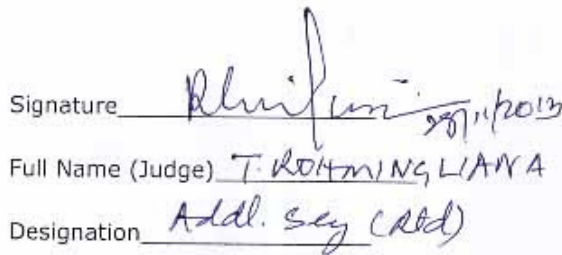 Signature 28/11/2013
Full Name (Judge) T. ROHMINGLIANA
Designation Addl. Secy (Rtd)